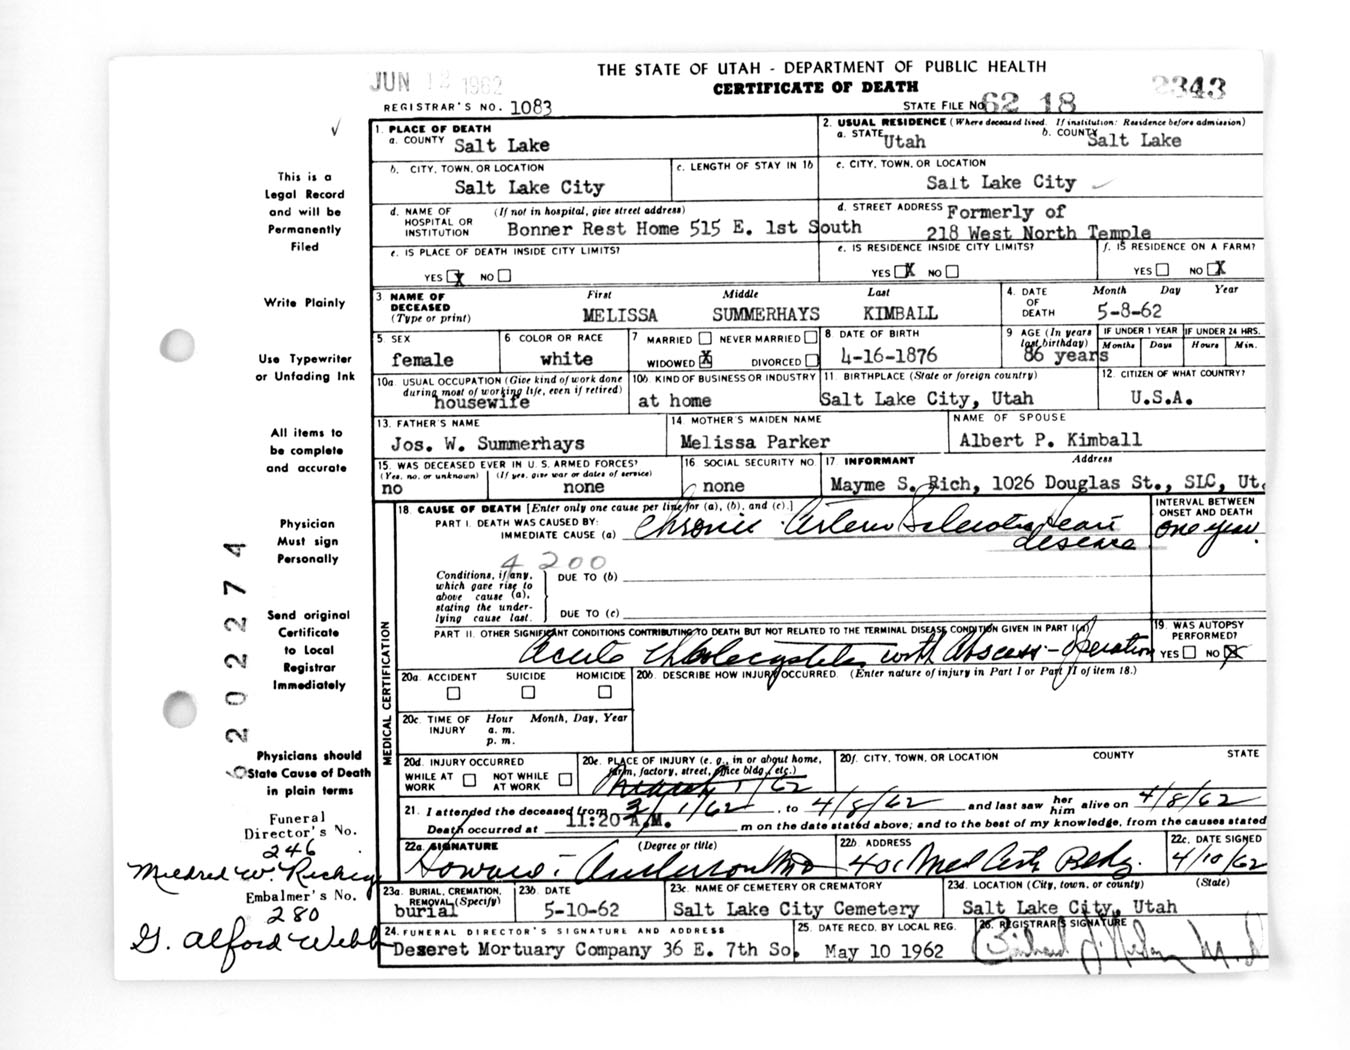 JUN 12 1962
THE STATE OF UTAH - DEPARTMENT OF PUBLIC HEALTH
CERTIFICATE OF DEATH
2343
REGISTRAR'S NO. 1083
STATE FILE NO. 62 18
✓
1. PLACE OF DEATH
a. COUNTY Salt Lake
2. USUAL RESIDENCE (Where deceased lived. If institution: Residence before admission)
a. STATE Utah b. COUNTY Salt Lake
b. CITY, TOWN, OR LOCATION
Salt Lake City
c. LENGTH OF STAY IN 1b
c. CITY, TOWN, OR LOCATION
Salt Lake City
d. NAME OF HOSPITAL OR INSTITUTION (If not in hospital, give street address)
Bonner Rest Home 515 E. 1st South
d. STREET ADDRESS Formerly of
218 West North Temple
e. IS PLACE OF DEATH INSIDE CITY LIMITS?
YES X NO
e. IS RESIDENCE INSIDE CITY LIMITS?
YES X NO
f. IS RESIDENCE ON A FARM?
YES NO X
3 NAME OF DECEASED (Type or print)
First Middle Last
MELISSA SUMMERHAYS KIMBALL
4. DATE OF DEATH Month Day Year
5-8-62
5. SEX
female
6 COLOR OR RACE
white
7 MARRIED NEVER MARRIED
WIDOWED X DIVORCED
8 DATE OF BIRTH
4-16-1876
9 AGE (In years last birthday)
86 years
IF UNDER 1 YEAR Months Days
IF UNDER 24 HRS. Hours Min.
10a. USUAL OCCUPATION (Give kind of work done during most of working life, even if retired)
housewife
10b. KIND OF BUSINESS OR INDUSTRY
at home
11. BIRTHPLACE (State or foreign country)
Salt Lake City, Utah
12. CITIZEN OF WHAT COUNTRY?
U.S.A.
13. FATHER'S NAME
Jos. W. Summerhays
14 MOTHER'S MAIDEN NAME
Melissa Parker
NAME OF SPOUSE
Albert P. Kimball
15. WAS DECEASED EVER IN U.S. ARMED FORCES?
(Yes, no, or unknown) (If yes, give war or dates of service)
no none
16 SOCIAL SECURITY NO.
none
17 INFORMANT Address
Mayme S. Rich, 1026 Douglas St., SLC, Ut.
18. CAUSE OF DEATH [Enter only one cause per line for (a), (b), and (c).]
PART I. DEATH WAS CAUSED BY:
IMMEDIATE CAUSE (a) Chronic Arterio Sclerotic Heart
disease
INTERVAL BETWEEN ONSET AND DEATH
one year.
4 200
Conditions, if any, which gave rise to above cause (a), stating the underlying cause last.
DUE TO (b)
DUE TO (c)
PART II. OTHER SIGNIFICANT CONDITIONS CONTRIBUTING TO DEATH BUT NOT RELATED TO THE TERMINAL DISEASE CONDITION GIVEN IN PART I(a)
Acute Cholecystitis with Abscess - Operation
19. WAS AUTOPSY PERFORMED?
YES NO X
MEDICAL CERTIFICATION
20a. ACCIDENT SUICIDE HOMICIDE
20b. DESCRIBE HOW INJURY OCCURRED. (Enter nature of injury in Part I or Part II of item 18.)
20c. TIME OF INJURY Hour Month, Day, Year
a. m.
p. m.
20d. INJURY OCCURRED
WHILE AT WORK NOT WHILE AT WORK
20e. PLACE OF INJURY (e. g., in or about home, farm, factory, street, office bldg., etc.)
March 1/62
20f. CITY, TOWN, OR LOCATION COUNTY STATE
21. I attended the deceased from 3/1/62, to 4/8/62 and last saw her him alive on 4/8/62
Death occurred at 11:20 A.M. m on the date stated above; and to the best of my knowledge, from the causes stated
22a. SIGNATURE (Degree or title)
Howard T Anderson MD
22b. ADDRESS
401 Med Arts Bldg.
22c. DATE SIGNED
4/10/62
23a. BURIAL, CREMATION, REMOVAL (Specify)
burial
23b. DATE
5-10-62
23c. NAME OF CEMETERY OR CREMATORY
Salt Lake City Cemetery
23d. LOCATION (City, town, or county) (State)
Salt Lake City, Utah
24. FUNERAL DIRECTOR'S SIGNATURE AND ADDRESS
Deseret Mortuary Company 36 E. 7th So.
25. DATE RECD. BY LOCAL REG.
May 10 1962
26. REGISTRAR'S SIGNATURE
This is a
Legal Record
and will be
Permanently
Filed
Write Plainly
Use Typewriter
or Unfading Ink
All items to
be complete
and accurate
Physician
Must sign
Personally
Send original
Certificate
to Local
Registrar
Immediately
Physicians should
State Cause of Death
in plain terms
6202274
Funeral
Director's No.
246
Mildred W. Richey
Embalmer's No.
280
G. Alford Webb